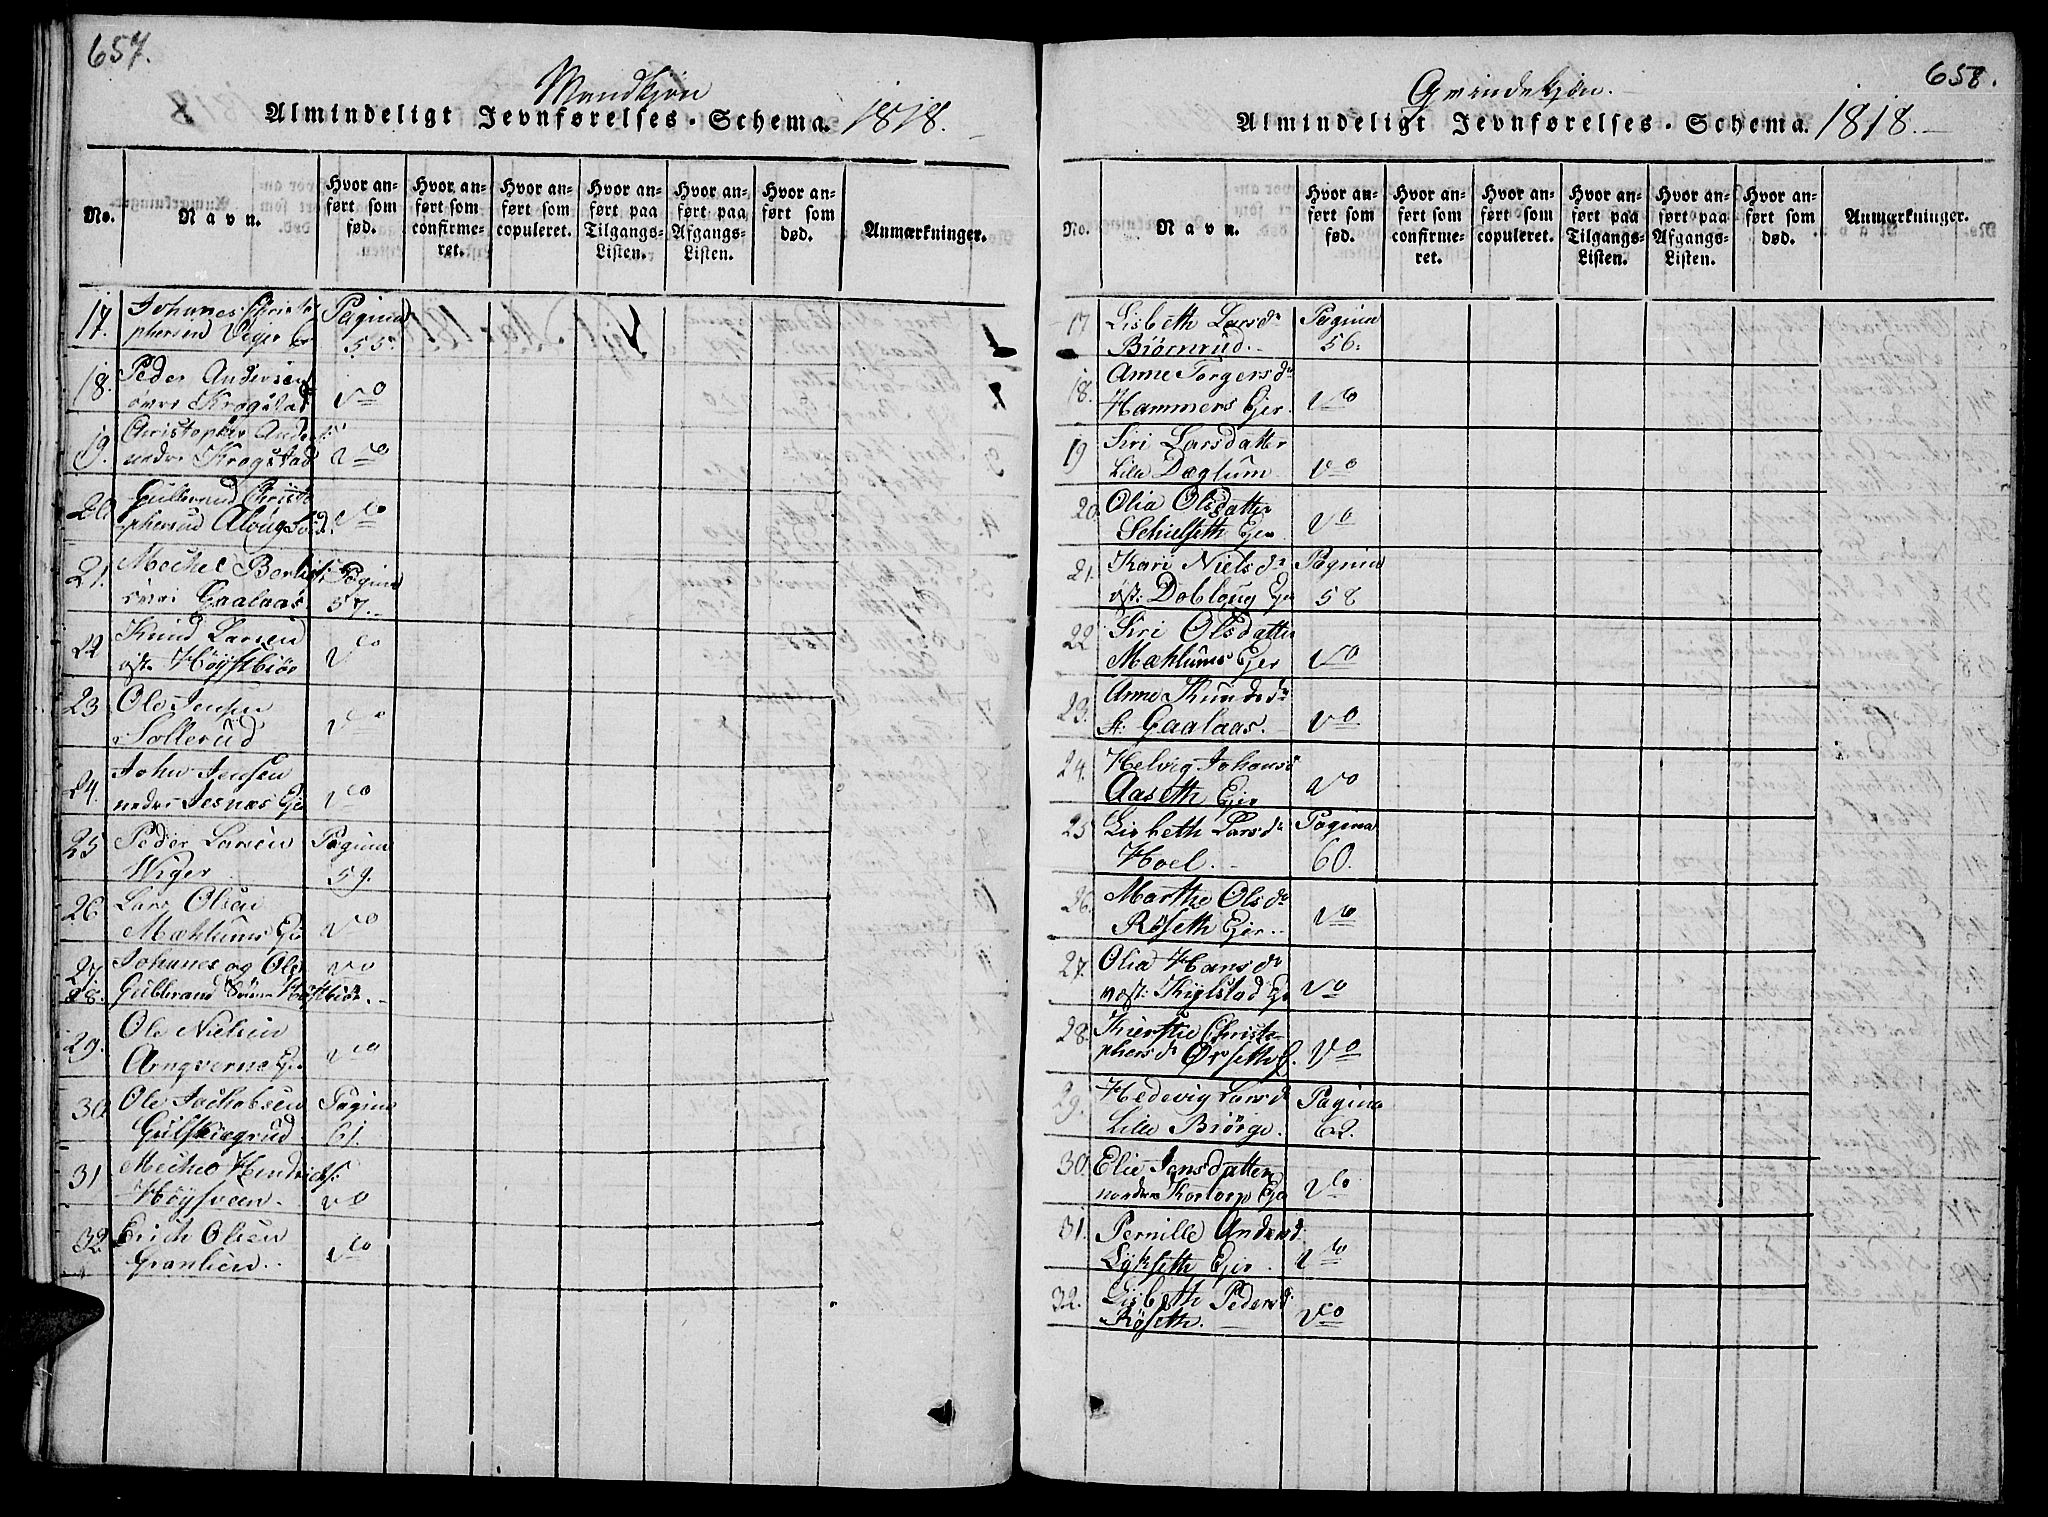 657.
Mandkjøn
Almindeligt Jevnførelses-Schema. 1818.
No.
Navn.
Hvor anført som fød.
Hvor anført som confirmeret.
Hvor anført som copuleret.
Hvor anført paa Tilgangs-Listen.
Hvor anført paa Afgangs-Listen.
Hvor anført som død.
Anmærkninger.
17. Johanes Christo Pagina
phersen Viger 55.
18. Peder Andersen
Krogstad do
19. Christopher Anders
nedre Krogstad do
20. Gulbrand Christo
phersen do
21. Mechel Pagina
Gaalaas 57.
22 Knud Larsen
øst. Høystbiør do
23 Ole Jensen
Sollerud do
24. John Jensen
nedre Jesnæs Eje do
25 Peder Larsen Pagina
Wiger 59.
26 Lars Olsen
Mæhlums Eje do
27 Johanes og Ole do
28. Gulbrand
29. Ole Nielsen
Arnqverne Eje do
30. Ole Jachobsen Pagina
Gulskiegrud 61.
31 Mechel Hendrichs:
Høysveen do
32. Erich Olsen
Granlien.. do
658.
Qvindekjøn.
Almindeligt Jevnførelses-Schema. 1818.
No.
Navn.
Hvor anført som fød.
Hvor anført som confirmeret.
Hvor anført som copuleret.
Hvor anført paa Tilgangs-Listen.
Hvor anført paa Afgangs-Listen.
Hvor anført som død.
Anmærkninger.
17 Lisbeth Larsdr Pagina
Biørnrud. 56.
18. Anne Torgersdr
Hammers Ejer. do
19 Siri Larsdatter
Lille Dæglum do
20. Olia Olsdatter
Schielseth Ejer do
21. Kari Nielsdr Pagina
øst: Dobloug Eje 58
22 Siri Olsdatter
Mæhlums Ejer do
23. Anne Knudsdr
st: Gaalaas. do
24. Helvig Johansd
Aaseth Ejer do
25 Lisbeth Larsdr Pagina
Hoel. 60.
26. Marthe Olsdr
Røseth Ejer. do
27. Olia Hansdr
vest: Kylstad Eje do
28. Kierstie Christo-
phersdr Ørseth E. do
29. Hedevig Larsd Pagina
Lille Biørge. 62.
30. Elie Jensdatter
nordre Kortorp Eje do
31. Pernille Andersd.
Lykseth Ejer. do
32. Lisbeth Pedersd
Røseth. do